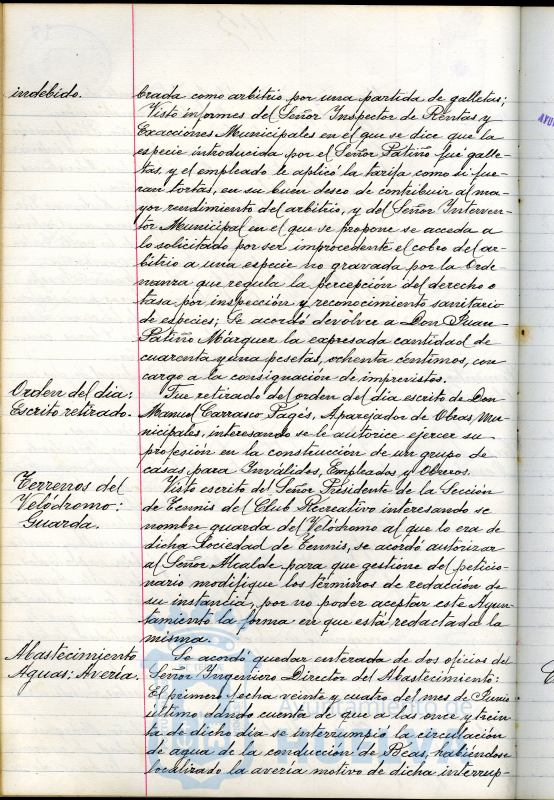 indebido.
brada como arbitrio por una partida de galletas;
Visto informes del Señor Inspector de Rentas y
Exacciones Municipales en el que se dice que la
especie introducida por el Señor Patiño fué galle-
tas, y el empleado le aplicó la tarifa como si fue-
ran tortas, en su buen deseo de contribuir al ma-
yor rendimiento del arbitrio, y del Señor Interven-
tor Municipal en el que se propone se acceda a
lo solicitado por ser improcedente el cobro del ar-
bitrio a una especie no gravada por la Orde-
nanza que regula la percepción del derecho o
tasa por inspección y reconocimiento sanitario
de especies; Se acordó devolver a Don Juan
Patiño Márquez la expresada cantidad de
cuarenta y una pesetas, ochenta céntimos, con
cargo a la consignación de imprevistos.
Orden del día:
Escrito retirado.
Fue retirado del orden del día escrito de Don
Manuel Carrasco Pagés, Aparejador de Obras Mu-
nicipales, interesando se le autorice ejercer su
profesión en la construcción de un grupo de
casas para Inválidos, Empleados y Obreros.
Terrenos del
Velódromo:
Guarda.
Visto escrito del Señor Presidente de la Sección
de Tennis del Club Recreativo interesando se
nombre guarda del Velódromo al que lo era de
dicha Sociedad de Tennis, se acordó autorizar
al Señor Alcalde para que gestione del peticio-
nario modifique los términos de redacción de
su instancia, por no poder aceptar este Ayun-
tamiento la forma en que está redactada la
misma.
Abastecimiento
Aguas: Avería.
Se acordó quedar enterada de dos oficios del
Señor Ingeniero Director del Abastecimiento:
El primero fecha veinte y cuatro del mes de Junio
último dando cuenta de que a las once y trein-
ta de dicho día se interrumpió la circulación
de agua de la conducción de Beas, habiéndose
localizado la avería motivo de dicha interrup-
Ayuntamiento de